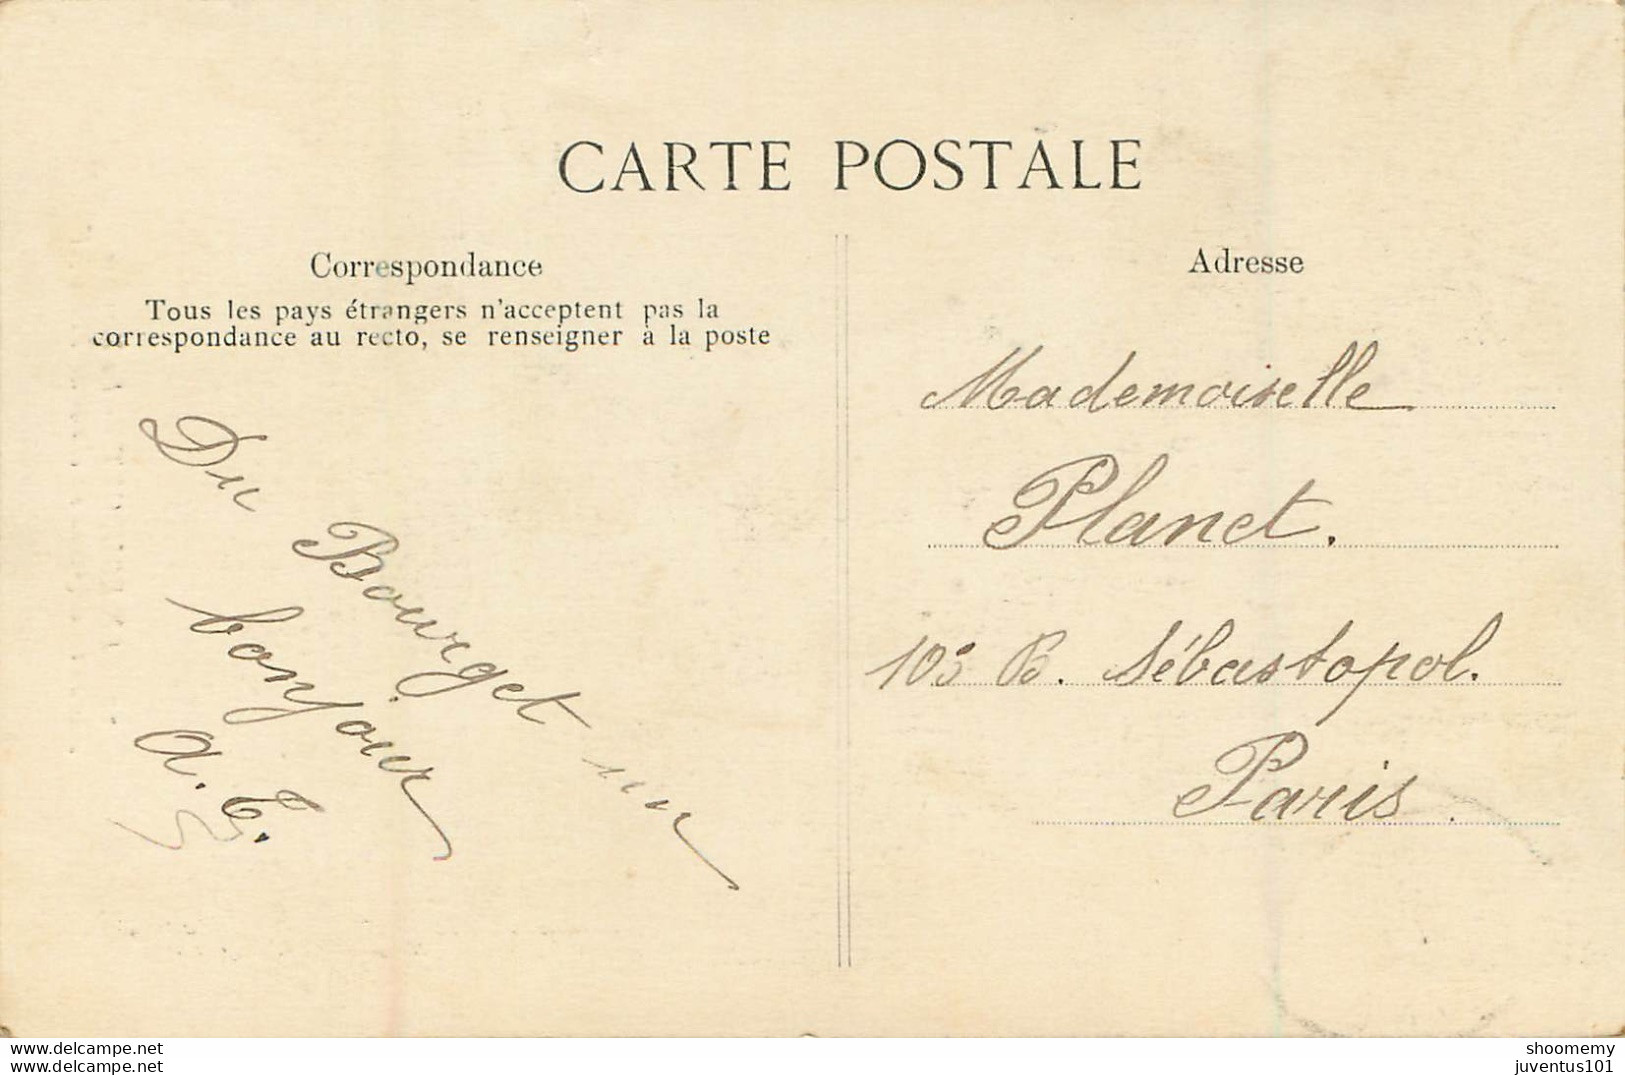 CARTE POSTALE
Correspondance
Tous les pays étrangers n'acceptent pas la
correspondance au recto, se renseigner à la poste
Du Bourget un
bonjour
A. E.
Adresse
Mademoiselle
Planet.
105 B. Sébastopol.
Paris.
www.delcampe.net
www.delcampe.net
shoomemy
juventus101